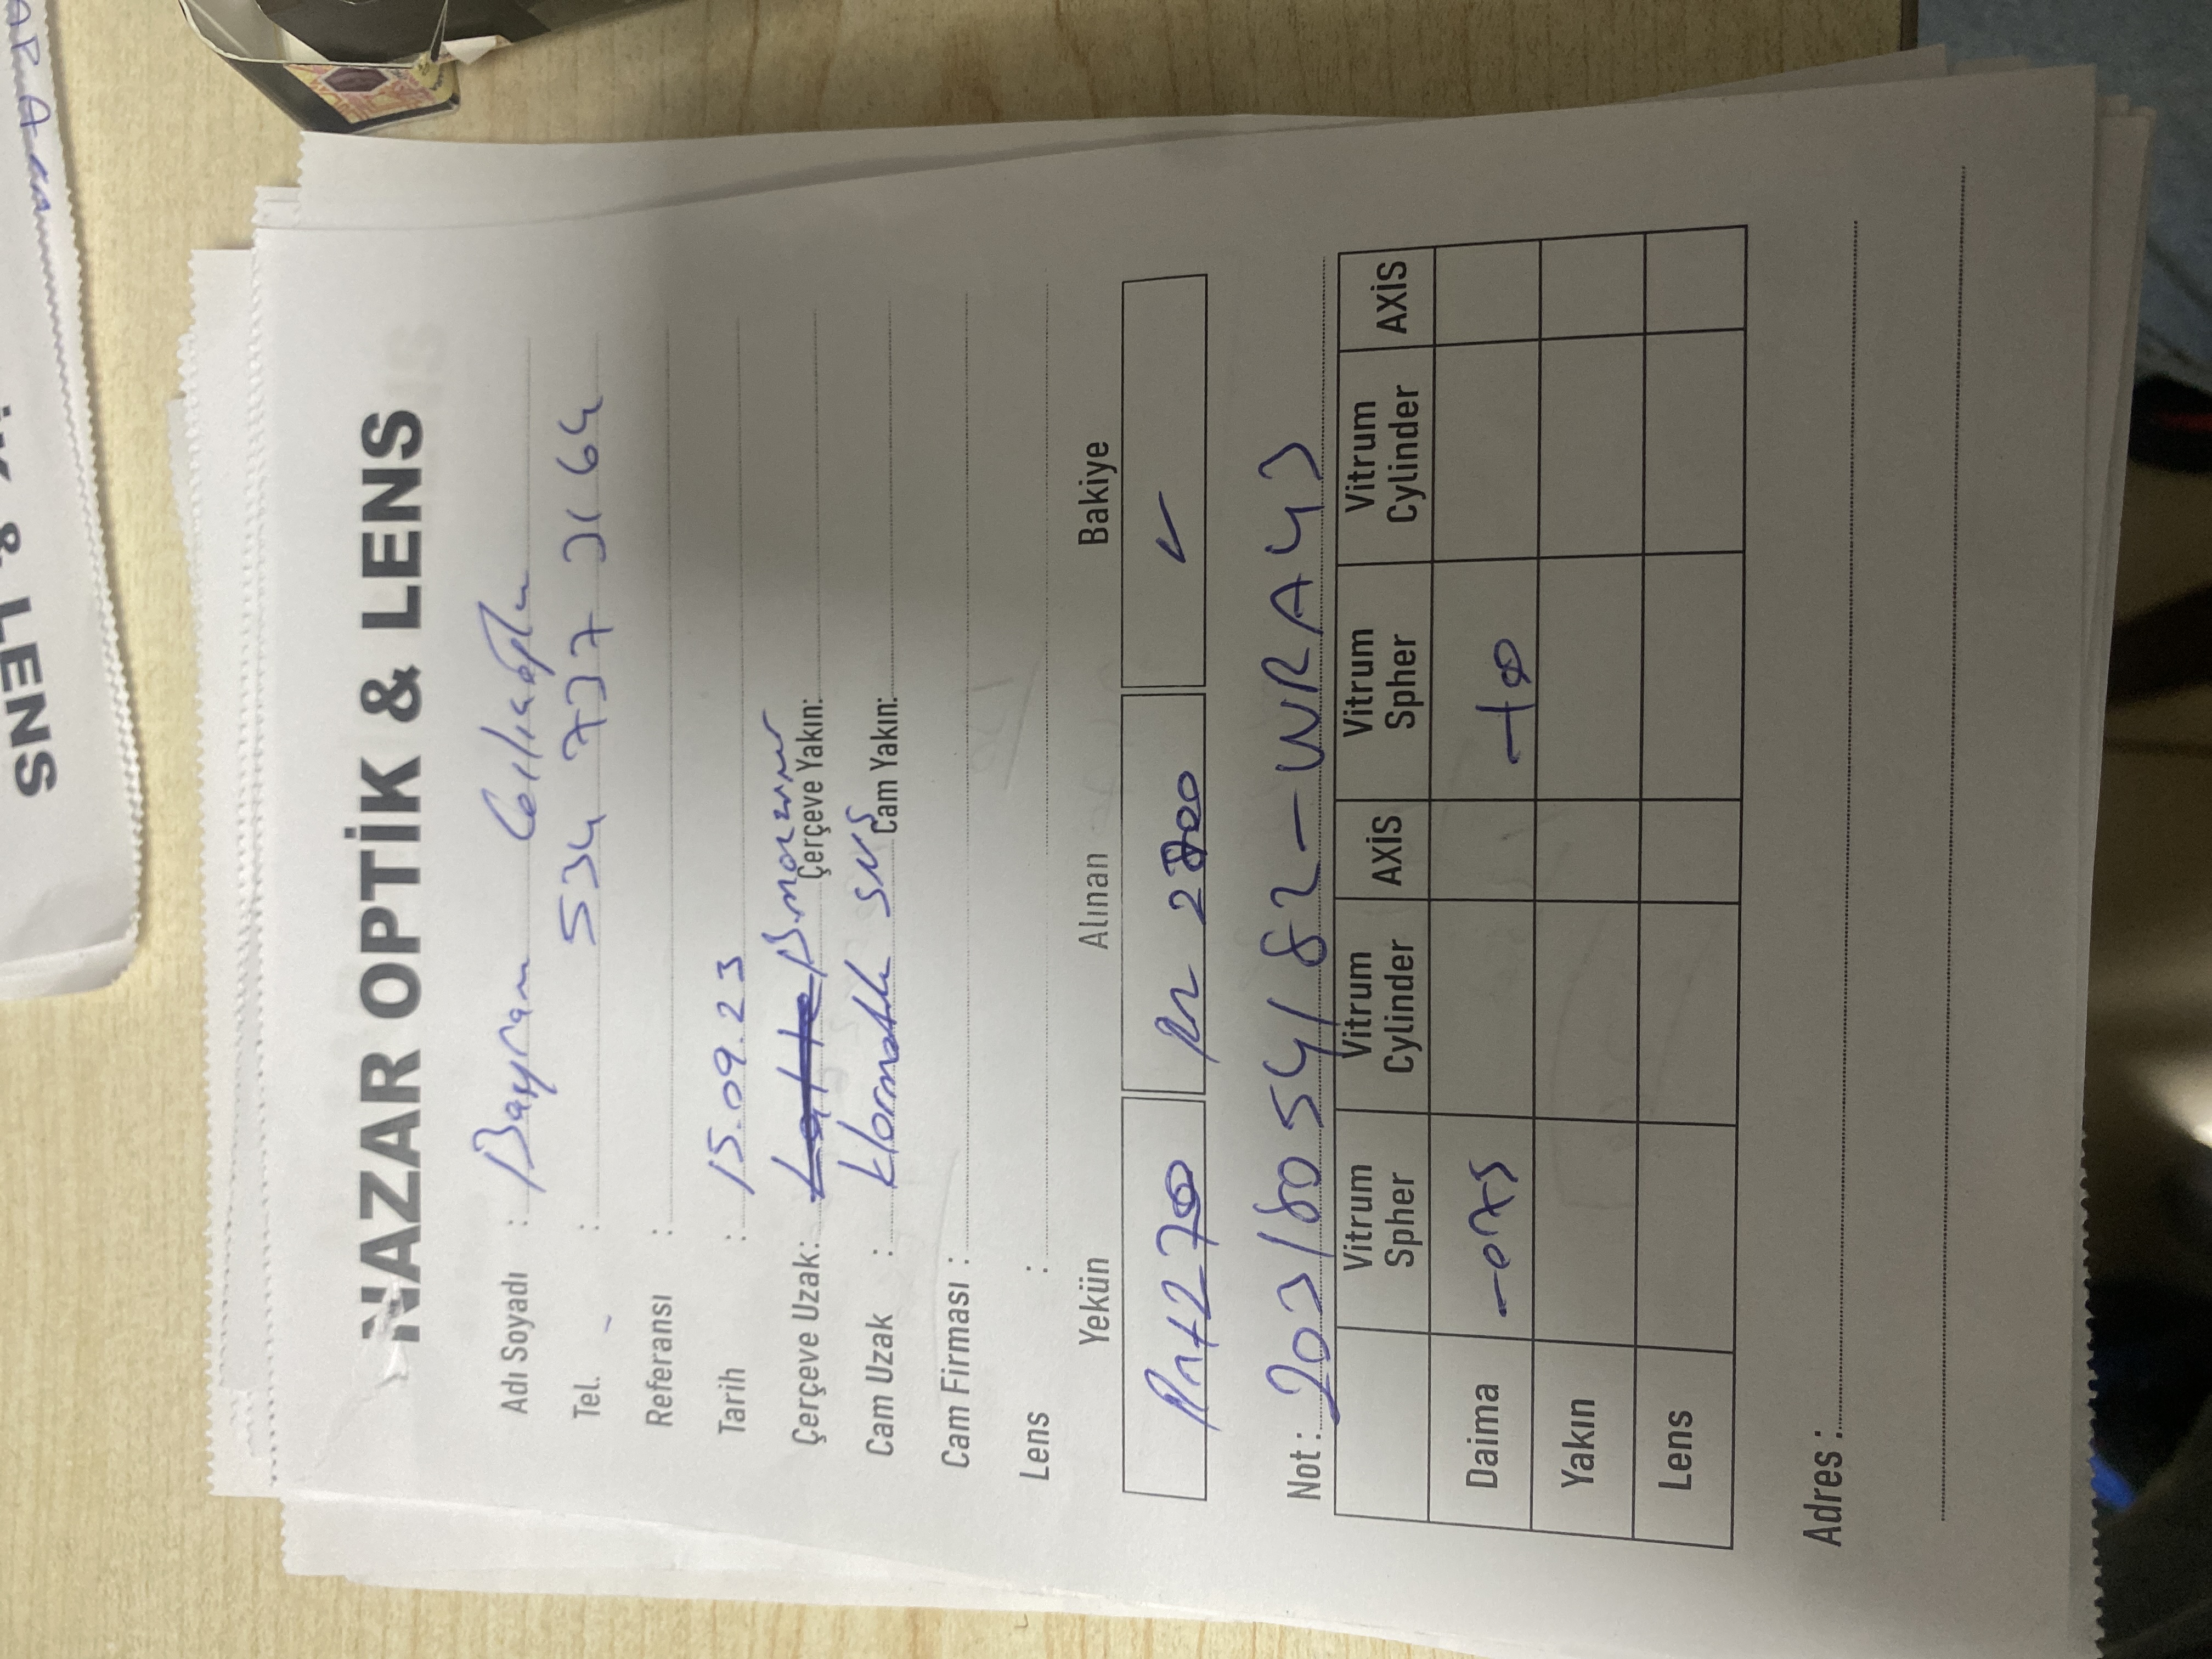 & LENS
NAZAR OPTİK & LENS
Adı Soyadı : Bayram
Tel. : 534 737 3164
Referansı :
Tarih : 15.09.23
Çerçeve Uzak: Çerçeve Yakın:
Cam Uzak : SNS Cam Yakın:
Cam Firması :
Lens :
Yekün Alınan Bakiye
2700 2700 ✓
Not : 203/8054/82-WRA43
Vitrum Spher Vitrum Cylinder AXİS Vitrum Spher Vitrum Cylinder AXİS
Daima -075 -100
Yakın
Lens
Adres :